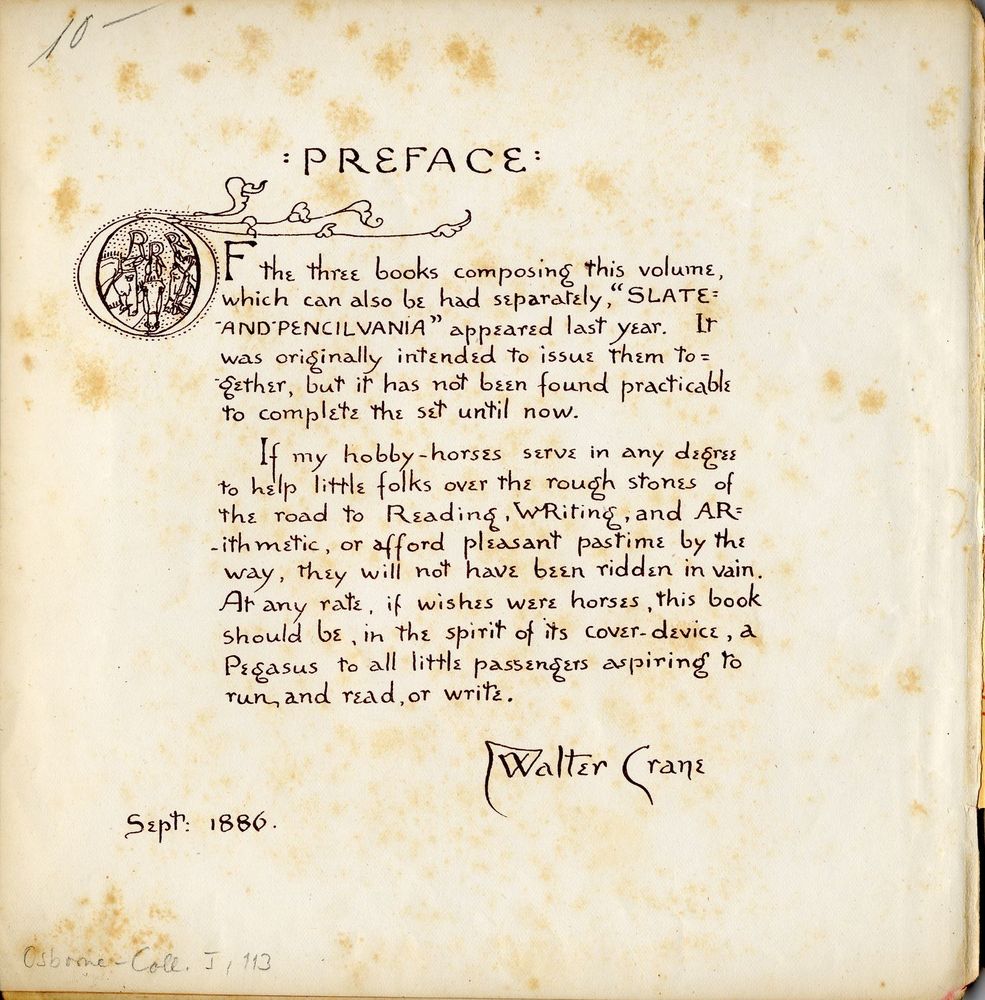 10 —
: PREFACE :
R R R
OF the three books composing this volume,
which can also be had separately, “SLATE=
-AND-PENCILVANIA” appeared last year. It
was originally intended to issue them to=
-gether, but it has not been found practicable
to complete the set until now.
If my hobby-horses serve in any degree
to help little folks over the rough stones of
the road to Reading, WRiting, and AR=
-ithmetic, or afford pleasant pastime by the
way, they will not have been ridden in vain.
At any rate, if wishes were horses, this book
should be, in the spirit of its cover-device, a
Pegasus to all little passengers aspiring to
run, and read, or write.
Walter Crane
Sept: 1886.
Osborne-Coll. I, 113